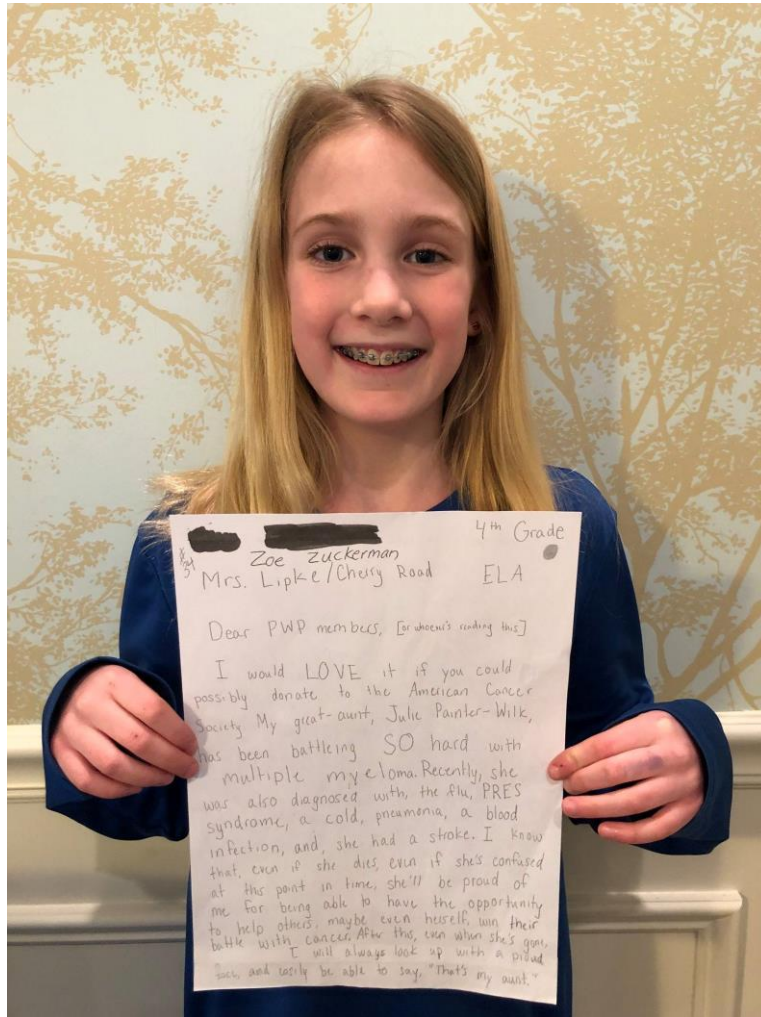 4th Grade
Zoe Zuckerman
Mrs. Lipke/Cherry Road ELA
Dear PWP members, [or whoever's reading this]
I would LOVE it if you could
possibly donate to the American Cancer
Society. My great-aunt, Julie Painter-Wilk,
has been battleing SO hard with
multiple myeloma. Recently, she
was also diagnosed with, the flu, PRES
syndrome, a cold, pneumonia, a blood
infection, and, she had a stroke. I know
that, even if she dies, even if she's confused
at this point in time, she'll be proud of
me for being able to have the opportunity
to help others, maybe even herself, win their
battle with cancer. After this, even when she's gone,
I will always look up with a proud
face, and easily be able to say, "That's my aunt."